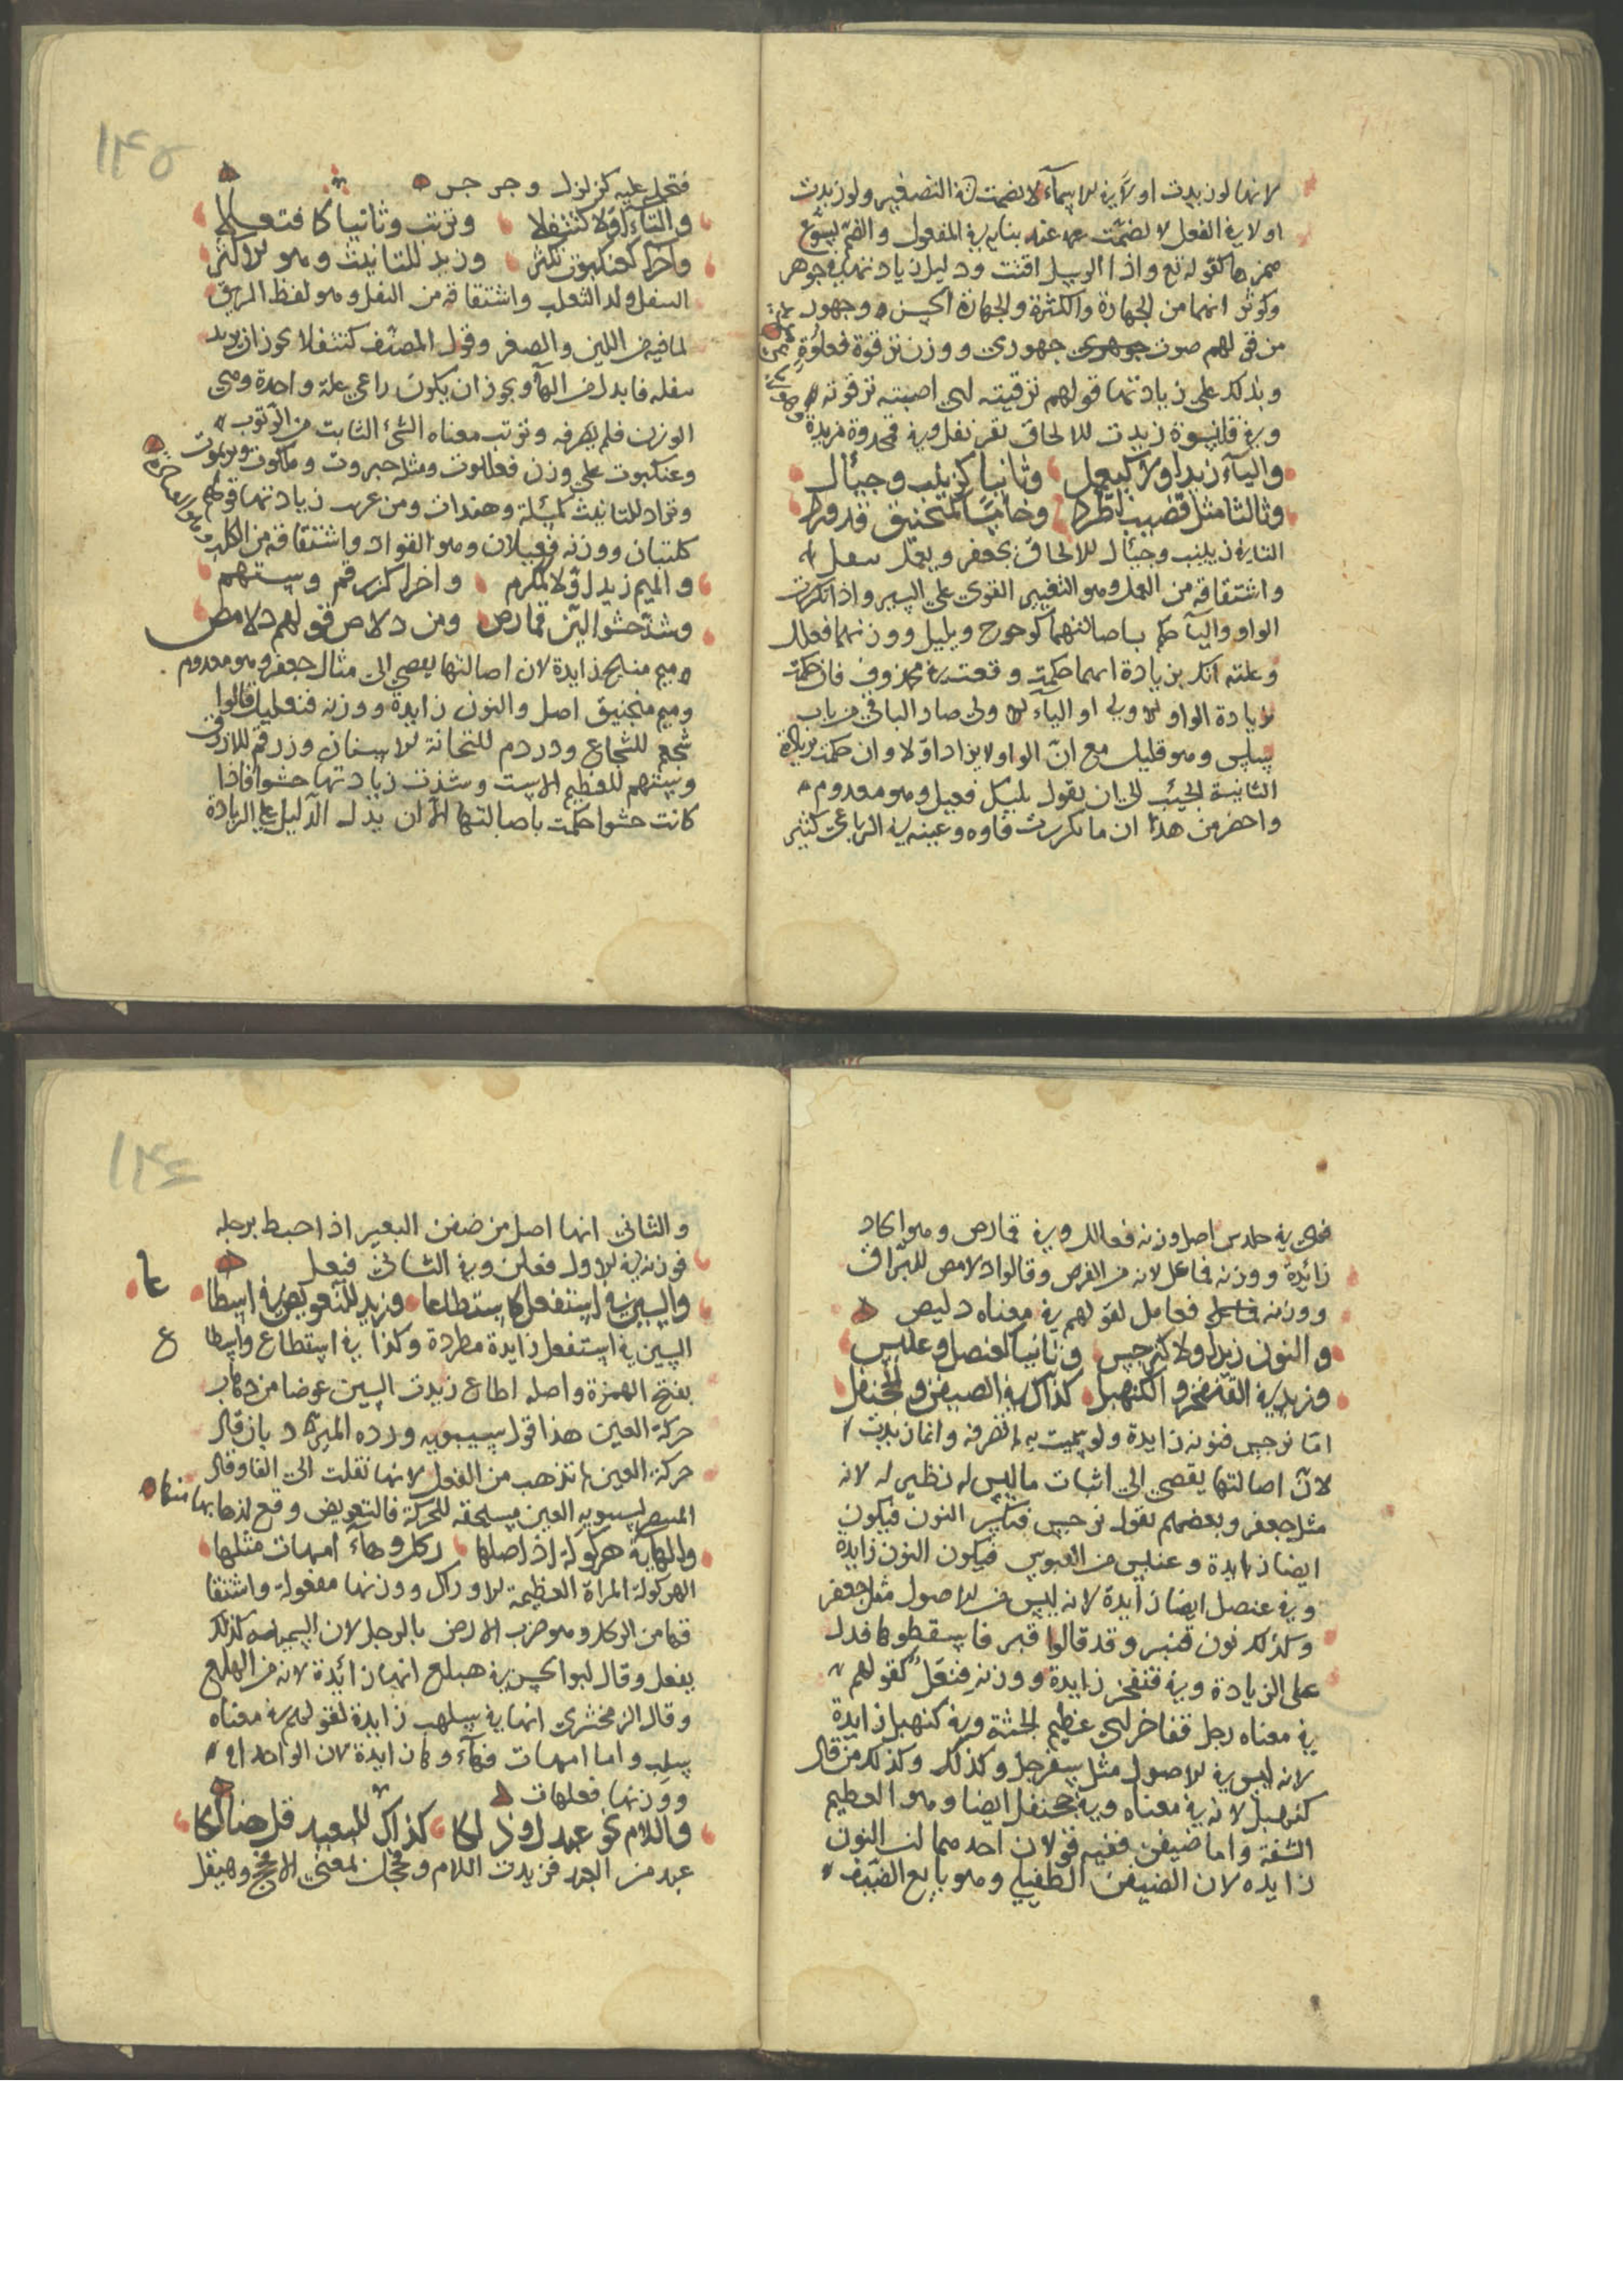 لانها لو زيدت اولا في الاسماء لانضمت في التصغير ولو زيدت
اولا في الفعل لانضمت عند بنايه في المفعول والضم يسوغ
همزها كقوله تع واذا الرسل اقتت ودليل زيادتها في جوهر
وكوثر انهما من الجهارة والكثرة والجهارة الحسن وجهور
من قولهم صوت جهوري ووزن ترقوة فعلوة
ويدلك على زيادتها قولهم ترقيته اي اصبته ترقوته
وفي قلنسوة زيدت للالحاق بقرنفل وفي قمحدوة مزيدة
والياء زيد اولا كيعمل وثانيا كزينب وجيأل
وثالثا مثل قضيب اطردا وخامسا كمنجنيق قد ورد
الياء في زينب وجيأل للالحاق بجعفر ويعمل يفعل
واشتقاقه من العمل وهو التغيير القوي على السير واذا تكررت
الواو والياء حكم باصالتهما كوحوح ويليل ووزنهما فعلل
وعلته انك بزيادة ايهما حكمت وقعت في محذوف فان حكمت
بزيادة الواو الاولى او الياء الاولى صار الباقي من باب
سلس وهو قليل مع ان الواو لا يزاد اولا وان حكمت بزيادة
الثانية الجئت الى ان يقول يليل فعيل وهو معدوم
واحضر من هذا ان ما تكررت فاوه وعينه في الرباعي كثير
١٤٥
فتحمل عليه كزلزل وجرجر
والتاء اولا كتتفلا وترتب وثانيا كافتعلا
وآخرا كعنكبوت تكثر وزيد للتانيث وهو الاكثر
التتفل ولد الثعلب واشتقاقه من التفل وهو لفظ الريق
لما فيه من اللين والصغر وقول المصنف كتتفلا يجوز ان يريد
تتفله فابدل من الهاء ويجوز ان يكون راعي علة واحدة وهي
الوزن فلم يصرفه وترتب معناه الشئ الثابت من الرتوب
وعنكبوت على وزن فعللوت ومثله جبروت وملكوت
وتزاد للتانيث كمسلمة وهندات ومن غريب زيادتها قولهم
كلتبان ووزنه فعتلان وهو القواد واشتقاقه من الكلب
والميم زيد اولا كمكرم واخرا كزرقم وستهم
وشذ حشوا اليّن قمارص ومن دلاص قولهم دلامص
ميم منبج زايدة لان اصالتها يفضي الى مثال جعفر وهو معدوم
وميم منجنيق اصل والنون زايدة ووزنه فنعليل قالوا
شجعم للشجاع ودردم للتحاتة الاسنان وزرقم للازرق
وستهم للعظيم الاست وشذت زيادتها حشوا فاذا
كانت حشوا حكمت باصالتها الا ان يدل الدليل على الزيادة
فهي في حلدس اصل وزنه فعالل وفي قمارص وهو الحاد
زائدة ووزنه فماعل لانه من القرص وقالوا دلامص للبراق
ووزنه فعامل لقولهم في معناه دليص
والنون زيد اولا كنرجس وثانيا كعنصل وعنبس
وزيد في القنفخر والكنهبل كذاك في الضيفن والجحنفل
اما نرجس فنونه زايدة ولو سميت به لم تصرفه وانما زيدت
لان اصالتها يفضي الى اثبات ما ليس له نظير له لانه
مثل جعفر وبعضهم يقول نرجس فتكسر النون فيكون
ايضا زايدة وعنبس من العبوس فيكون النون زايدة
وفي عنصل ايضا زايدة لانه ليس من الاصول مثل جعفر
وكذلك نون قنبر وقد قالوا قبر فاسقطوها فدل
على الزيادة وفي قنفخر زايدة ووزنه فنعل كقولهم
في معناه رجل قفاخر اي عظيم الجثة وفي كنهبل زايدة
لانه ليس في الاصول مثل سفرجل وكذلك وكذلك من قال
كنهبل لانه في معناه وفي جحنفل ايضا وهو العظيم
الشفة واما ضيفن ففيه قولان احدهما ان النون
زايده لان الضيفن الطفيلي وهو تابع الضيف
١٤٦
والثاني انها اصل من ضفن البعير اذا خبط برجله
فوزنه في الاول فعلن وفي الثاني فيعل
والسين في استفعل كاستطاعا وزيد للتعويض في اسطا عا
السين في استفعل زايدة مطردة وكذا في استقطاع واسطا ع
بفتح الهمزة واصله اطاع زيدت السين عوضا من ذهاب
حركة العين هذا قول سيبويه ورده المبرد بان قال
حركة العين لم تذهب من الفعل لانها نقلت الى الفاء وقال
المنتصر لسيبويه العين مستحقه للحركة فالتعويض وقع لذهابها منها
والهاء في هركولة اذ اصلها ركل وهاء امهات مثلها
الهركولة المراة العظيمة الاوراك ووزنها هفعولة واشتقا
قها من الركل وهو ضرب الارض بالرجل لان السمينة كذلك
يفعل وقال ابو الحسن في هبلع انها زائدة لانه من البلع
وقال الزمخشري انها في سلهب زايدة لقولهم في معناه
سلب واما امهات فهاء وها زايدة لان الواحد ام
ووزنها فعلهات
واللام نحو عبدل وذلكا كذاك للبعيد قل هنالكا
عبد من العبد فزيدت اللام وفحجل بمعنى الافحج وهيقل